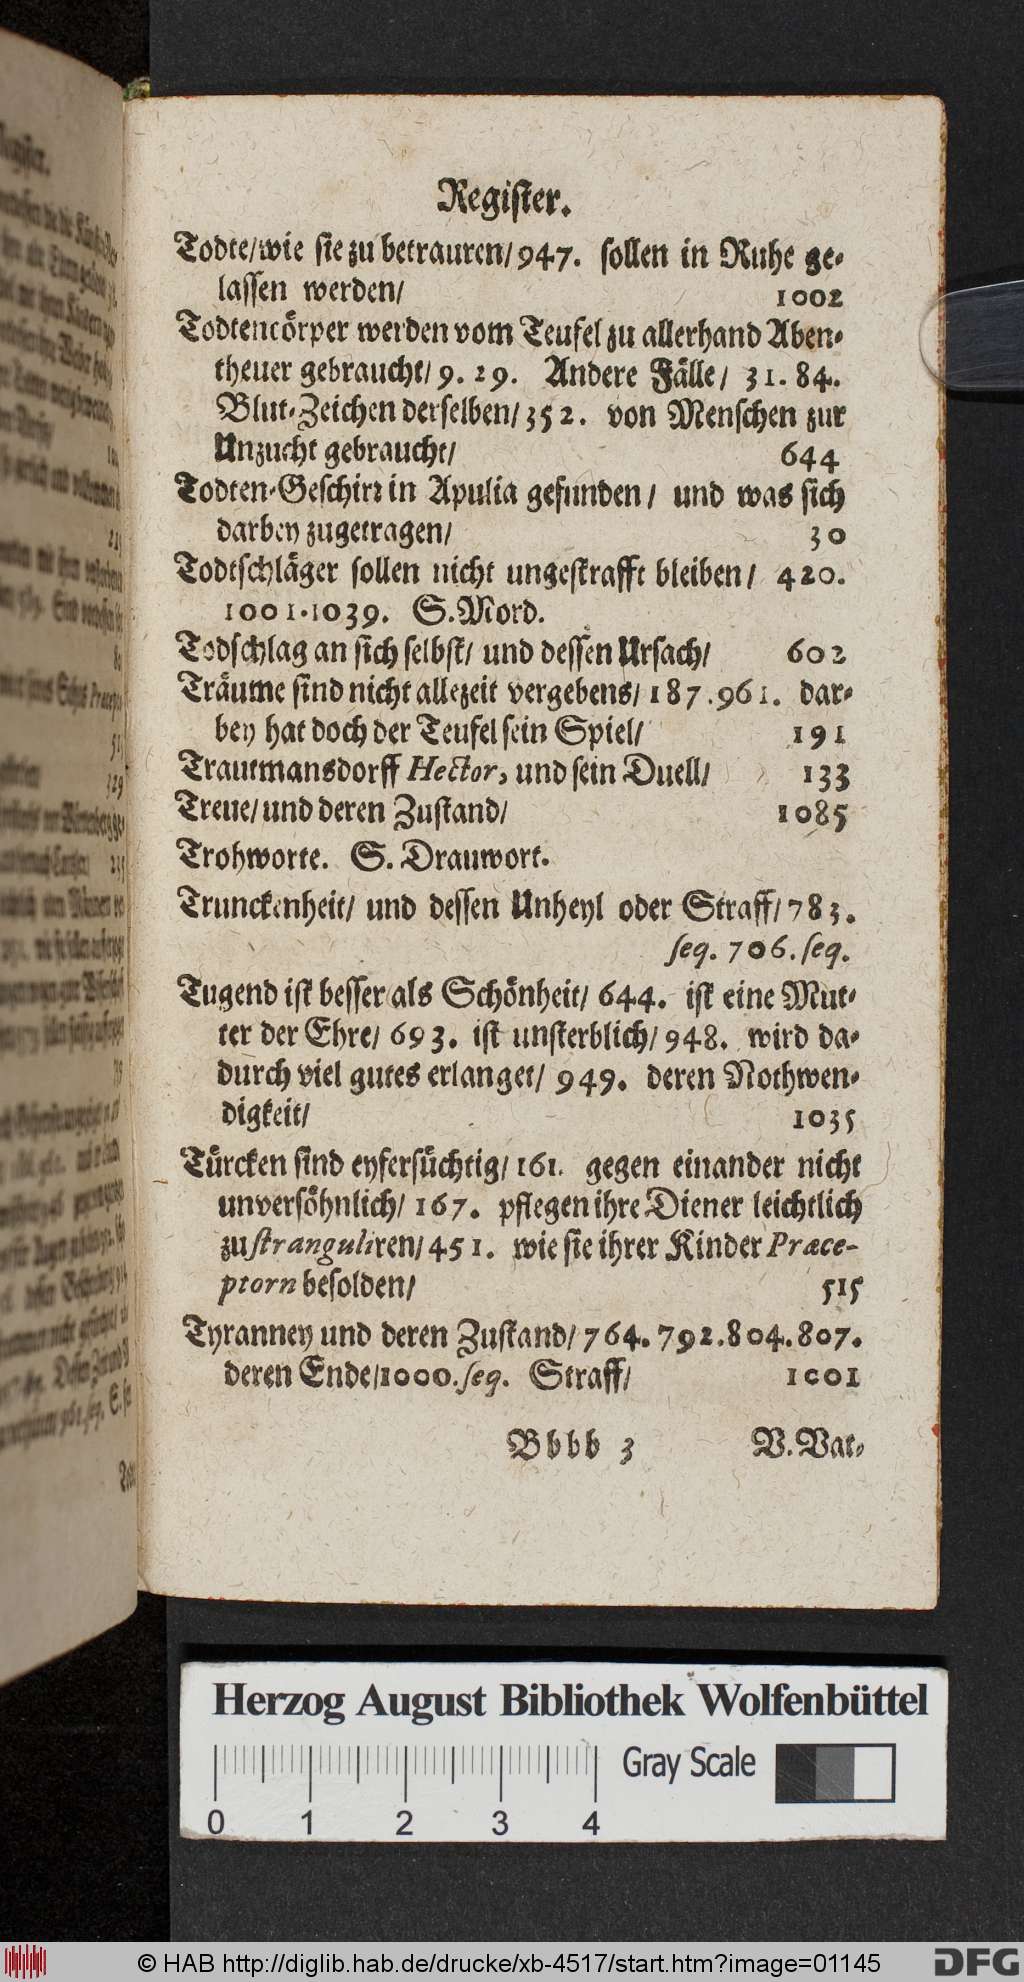 Regiſter.
Todte/wie ſie zu betrauren/947. ſollen in Ruhe ge-
laſſen werden/ 1002
Todtencörper werden vom Teufel zu allerhand Aben-
theuer gebraucht/ 9. 29. Andere Fälle/ 31. 84.
Blut-Zeichen derſelben/ 352. von Menſchen zur
Unzucht gebraucht/ 644
Todten-Geſchirr in Apulia gefunden/ und was ſich
darbey zugetragen/ 30
Todtſchläger ſollen nicht ungeſtrafft bleiben/ 420.
1001.1039. S. Mord.
Todſchlag an ſich ſelbſt/ und deſſen Urſach/ 602
Träume ſind nicht allezeit vergebens/ 187.961. dar-
bey hat doch der Teufel ſein Spiel/ 191
Trautmansdorff Hector, und ſein Duell/ 133
Treue/ und deren Zuſtand/ 1085
Trohworte. S. Drauwort.
Trunckenheit/ und deſſen Unheyl oder Straff/ 783.
ſeq. 706. ſeq.
Tugend iſt beſſer als Schönheit/ 644. iſt eine Mut-
ter der Ehre/ 693. iſt unſterblich/ 948. wird da-
durch viel gutes erlanget/ 949. deren Nothwen-
digkeit/ 1035
Türcken ſind eyferſüchtig/ 161. gegen einander nicht
unverſöhnlich/ 167. pflegen ihre Diener leichtlich
zu ſtranguliren/ 451. wie ſie ihrer Kinder Præce-
ptorn beſolden/ 515
Tyranney und deren Zuſtand/ 764. 792.804.807.
deren Ende/1000. ſeq. Straff/ 1001
Bbbb 3 V. Vat-
Herzog August Bibliothek Wolfenbüttel
Gray Scale
0 1 2 3 4
© HAB http://diglib.hab.de/drucke/xb-4517/start.htm?image=01145
DFG